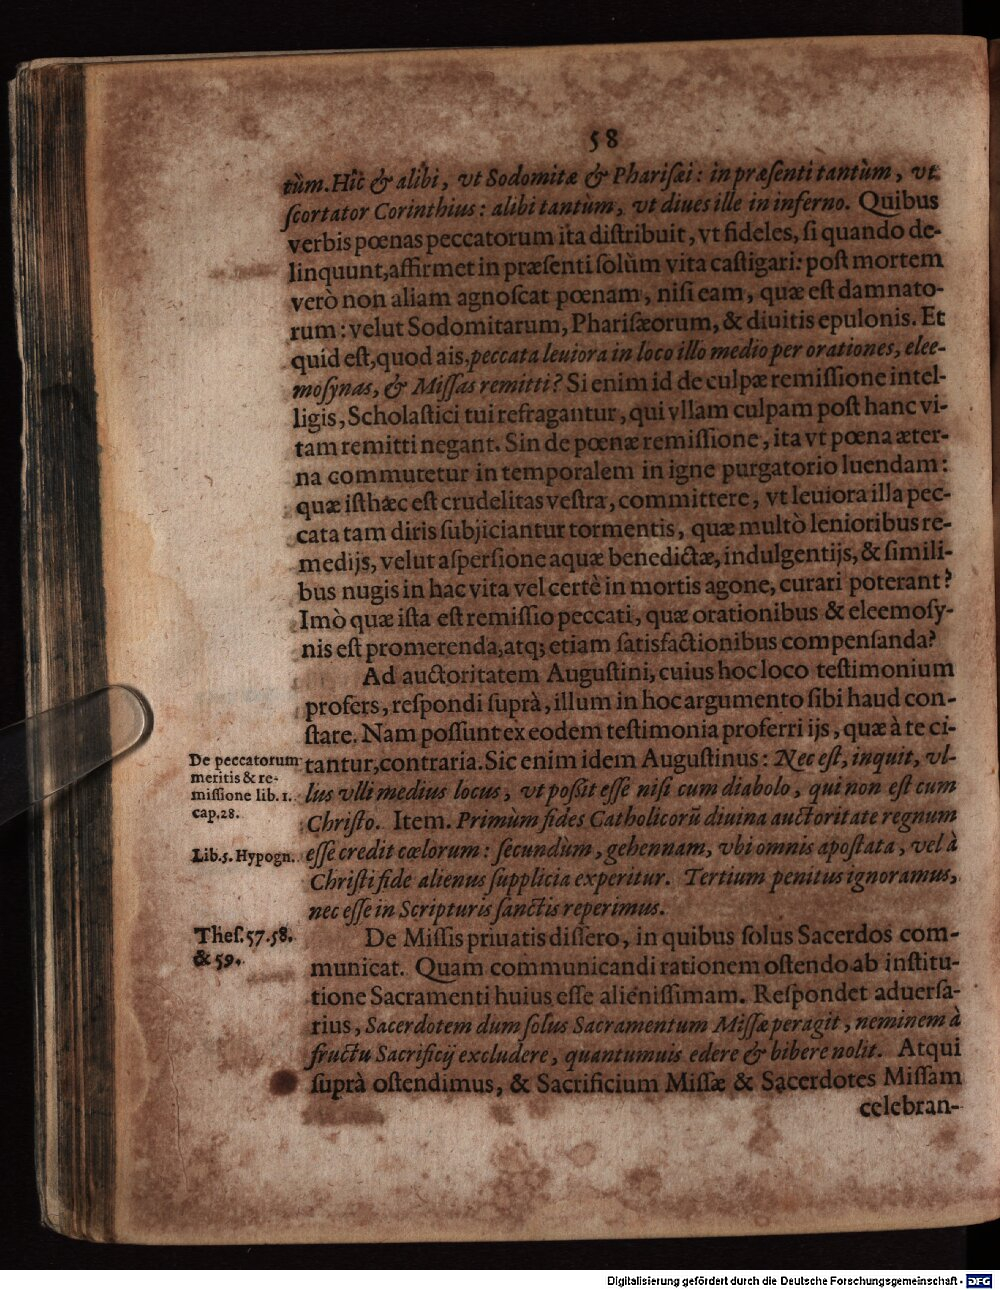 58
tùm. Hîc & alibi, vt Sodomitæ & Pharisæi: in præsenti tantùm, vt
scortator Corinthius: alibi tantùm, vt diues ille in inferno. Quibus
verbis pœnas peccatorum ita distribuit, vt fideles, si quando de-
linquunt, affirmet in præsenti solùm vita castigari: post mortem
verò non aliam agnoscat pœnam, nisi eam, quæ est damnato-
rum: velut Sodomitarum, Pharisæorum, & diuitis epulonis. Et
quid est, quod ais, peccata leuiora in loco illo medio per orationes, elee-
mosynas, & Missas remitti? Si enim id de culpæ remissione intel-
ligis, Scholastici tui refragantur, qui vllam culpam post hanc vi-
tam remitti negant. Sin de pœnæ remissione, ita vt pœna æter-
na commutetur in temporalem in igne purgatorio luendam:
quæ isthæc est crudelitas vestra, committere, vt leuiora illa pec-
cata tam diris subjiciantur tormentis, quæ multò lenioribus re-
medijs, velut aspersione aquæ benedictæ, indulgentijs, & simili-
bus nugis in hac vita vel certè in mortis agone, curari poterant?
Imò quæ ista est remissio peccati, quæ orationibus & eleemosy-
nis est promerenda, atq; etiam satisfactionibus compensanda?
Ad auctoritatem Augustini, cuius hoc loco testimonium
profers, respondi suprà, illum in hoc argumento sibi haud con-
stare. Nam possunt ex eodem testimonia proferri ijs, quæ à te ci-
tantur, contraria. Sic enim idem Augustinus: Nec est, inquit, vl-
lus vlli medius locus, vt possit esse nisi cum diabolo, qui non est cum
Christo. Item. Primùm fides Catholicorũ diuina auctoritate regnum
esse credit cœlorum: secundùm, gehennam, vbi omnis apostata, vel à
Christi fide alienus supplicia experitur. Tertium penitus ignoramus,
nec esse in Scripturis sanctis reperimus.
De peccatorum
meritis & re-
missione lib. 1.
cap. 28.
Lib. 5. Hypogn.
Thes. 57. 58.
& 59.
De Missis priuatis dissero, in quibus solus Sacerdos com-
municat. Quam communicandi rationem ostendo ab institu-
tione Sacramenti huius esse alienissimam. Respondet aduersa-
rius, Sacerdotem dum solus Sacramentum Missæ peragit, neminem à
fructu Sacrificij excludere, quantumuis edere & bibere nolit. Atqui
suprà ostendimus, & Sacrificium Missæ & Sacerdotes Missam
celebran-
Digitalisierung gefördert durch die Deutsche Forschungsgemeinschaft - DFG